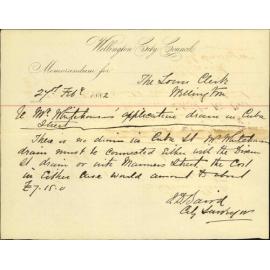 Wellington City Council
Memorandum for
The Town Clerk
27th Feby 1882
Wellington
Re Mr Whitehouse's application drain in Cuba
Street
There is no drain in Cuba St Mr Whitehouse
drain must be connected either with the Dixon
St drain or with Manners Street the Cost
in either case would amount to about
£7.15.0
Baird
City Surveyor